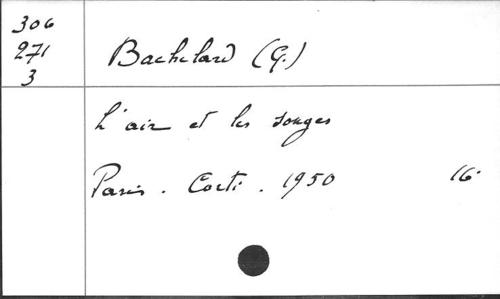 306
271
3
Bachelard (G.)
L'air et les songes
Paris. Corti. 1950 16°